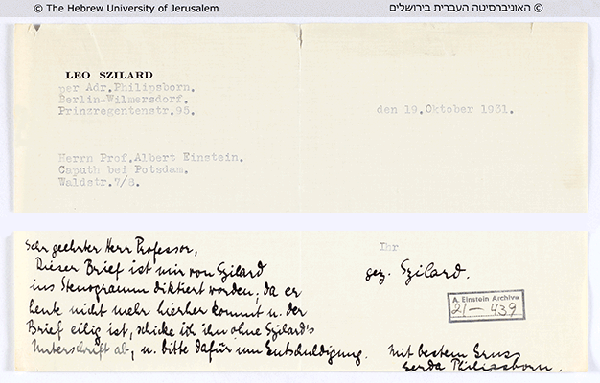 © The Hebrew University of Jerusalem
© האוניברסיטה העברית בירושלים
LEO SZILARD
per Adr. Philipsborn.
Berlin-Wilmersdorf.
Prinzregentenstr. 95.
den 19. Oktober 1931.
Herrn Prof. Albert Einstein.
Caputh bei Potsdam.
Waldstr. 7/8.
Sehr geehrter Herr Professor,
Dieser Brief ist mir von Szilard
ins Stenogramm diktiert worden; da er
heute nicht mehr hierher kommt u. der
Brief eilig ist, schicke ich ihn ohne Szilard's
Unterschrift ab, u. bitte dafür um Entschuldigung.
Ihr
gez. Szilard.
A. Einstein Archive
21 - 439
Mit bestem Gruss
Gerda Philipsborn.